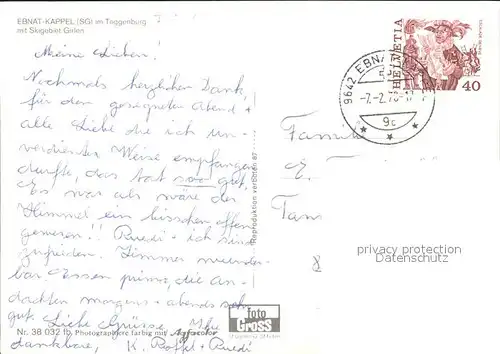 EBNAT-KAPPEL (SG) im Toggenburg
mit Skigebiet Girlen
Meine Lieben!
Nochmals herzlichen Dank,
für den gesegneten Abend +
alle Liebe die ich un-
verdienter Weise empfangen
durfte, das tat so gut,
Es war als wäre der
Himmel ein bisschen offen
gewesen!! Ruedi + ich sind
zufrieden. Zimmer wunder-
bar Essen prima, die An-
dachten morgens + abends sehr
gut. Liebe Grüsse, Ihre
dankbare, K. + Ruedi
Nr. 38 032 b Photographiere farbig mit Agfacolor
foto
Gross
Reproduktion verboten 87
9642 EBNAT
-7.-2.78-17
9c
HELVETIA
40
Familie
E.
privacy protection
Datenschutz
8